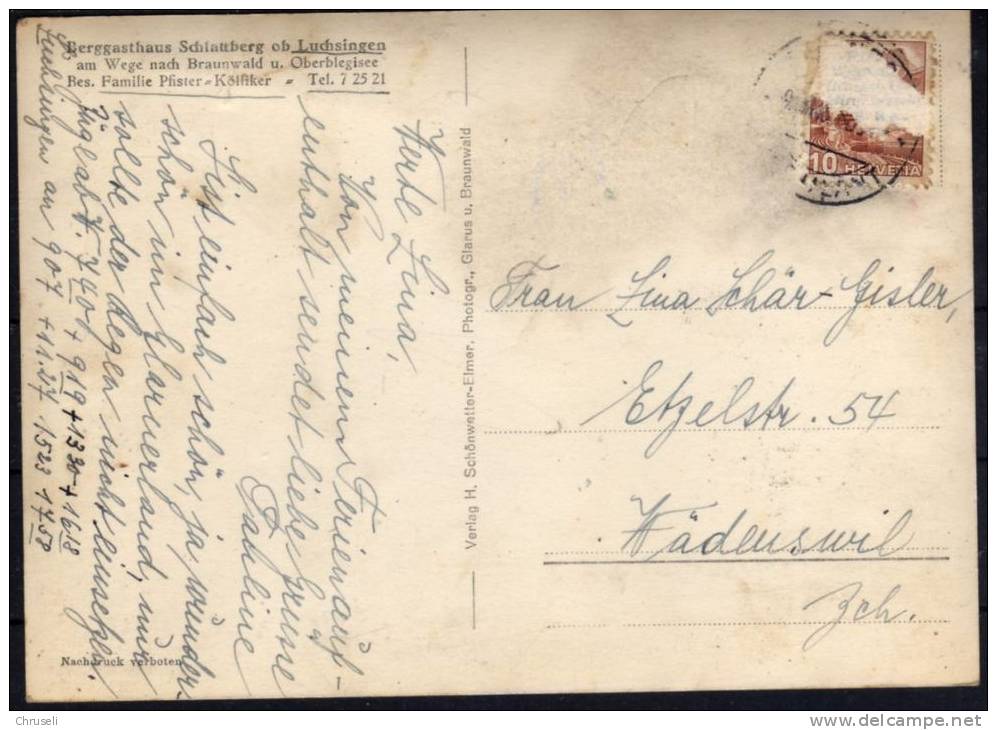 Berggasthaus Schlattberg ob Luchsingen
am Wege nach Braunwald u. Oberblegisee
Bes. Familie Pfister-Kölliker - Tel. 7 25 21
Werte Lina,
Von meinem Ferienauf-
enthalt sendet liebe Grüsse
Pauline
Hist einfach schön, ja wunder-
schön im Glarnerland, nur
sollte der Regen nicht einsetzen.
Züg ab Z. 740 + 919 + 1330 + 1618
Luchsingen an 907 + 1127 1523 1758
Nachdruck verboten
Verlag H. Schönwetter-Elmer, Photogr., Glarus u. Braunwald
10 HELVETIA
Frau Lina Schär-Gisler,
Etzelstr. 54
Wädenswil
Zch.
Chruseli
delcampe.net